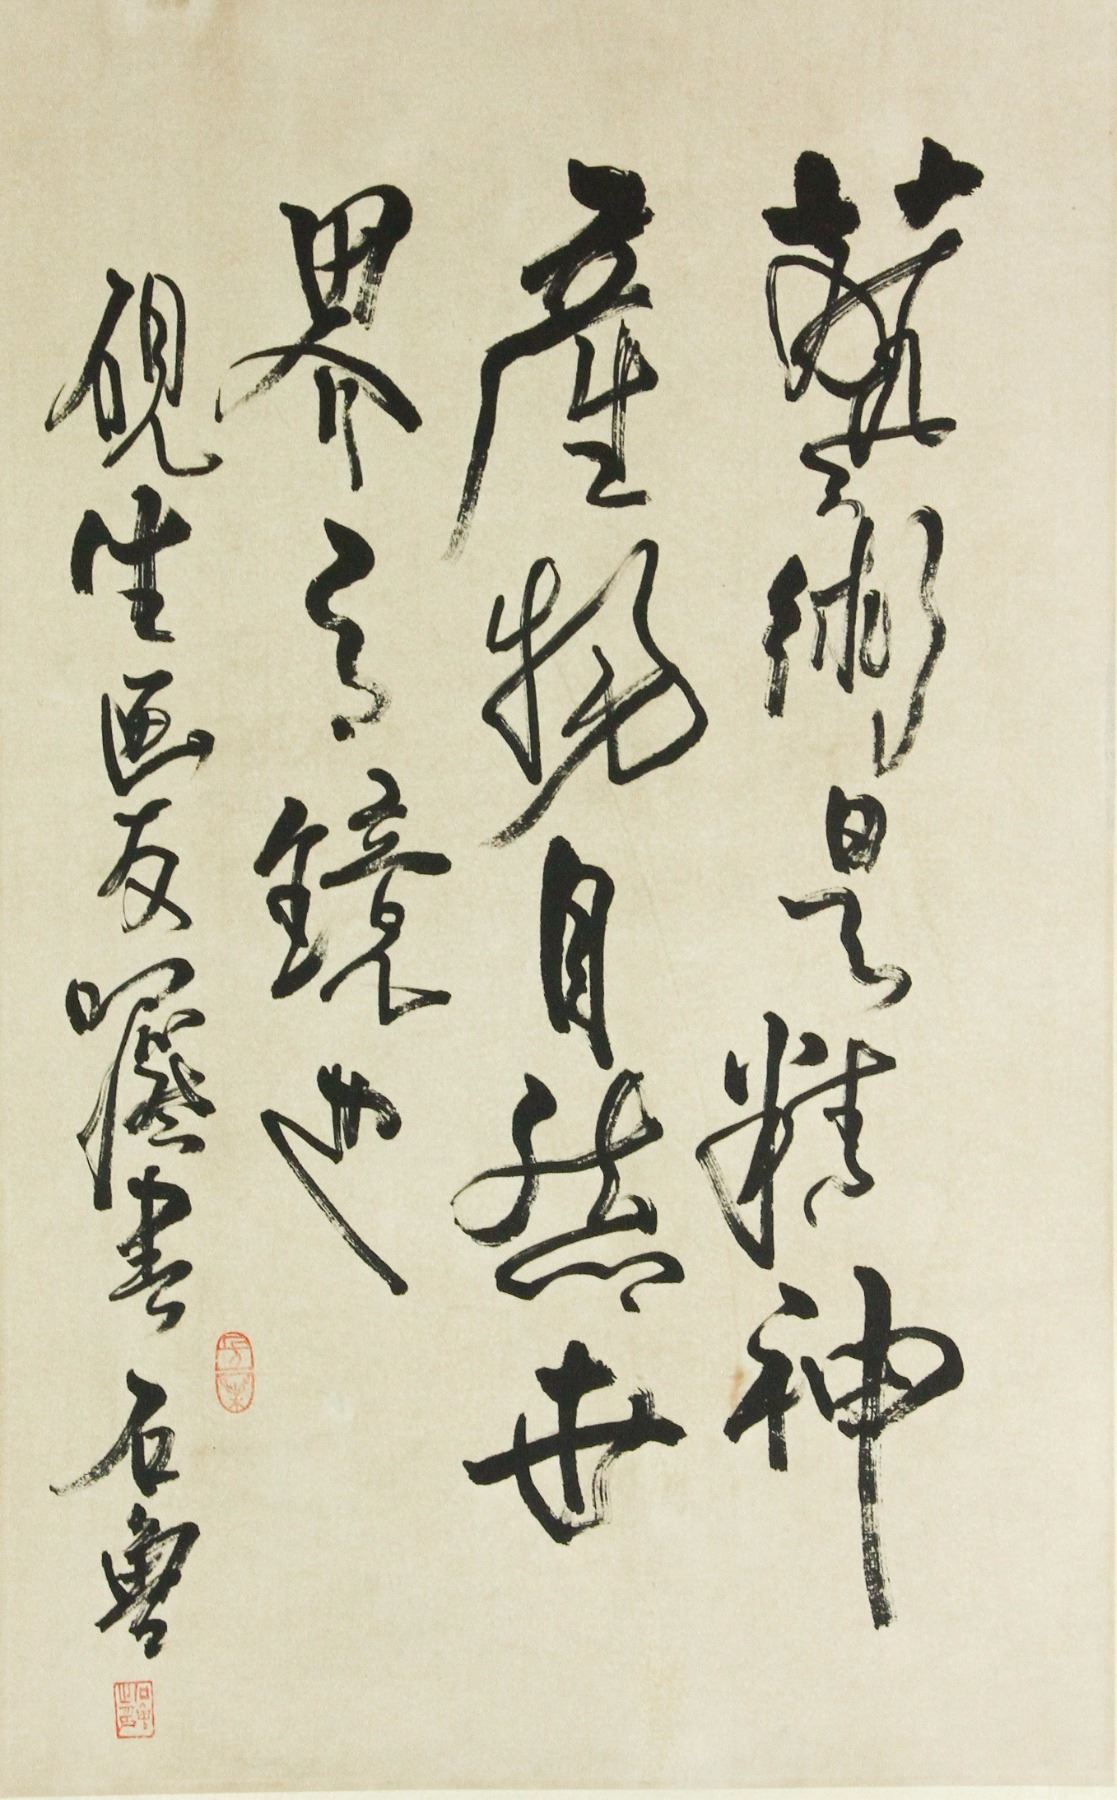 藝術是精神
產物自然世
界之鏡也
硯生画友囑書 石魯
石魯之印